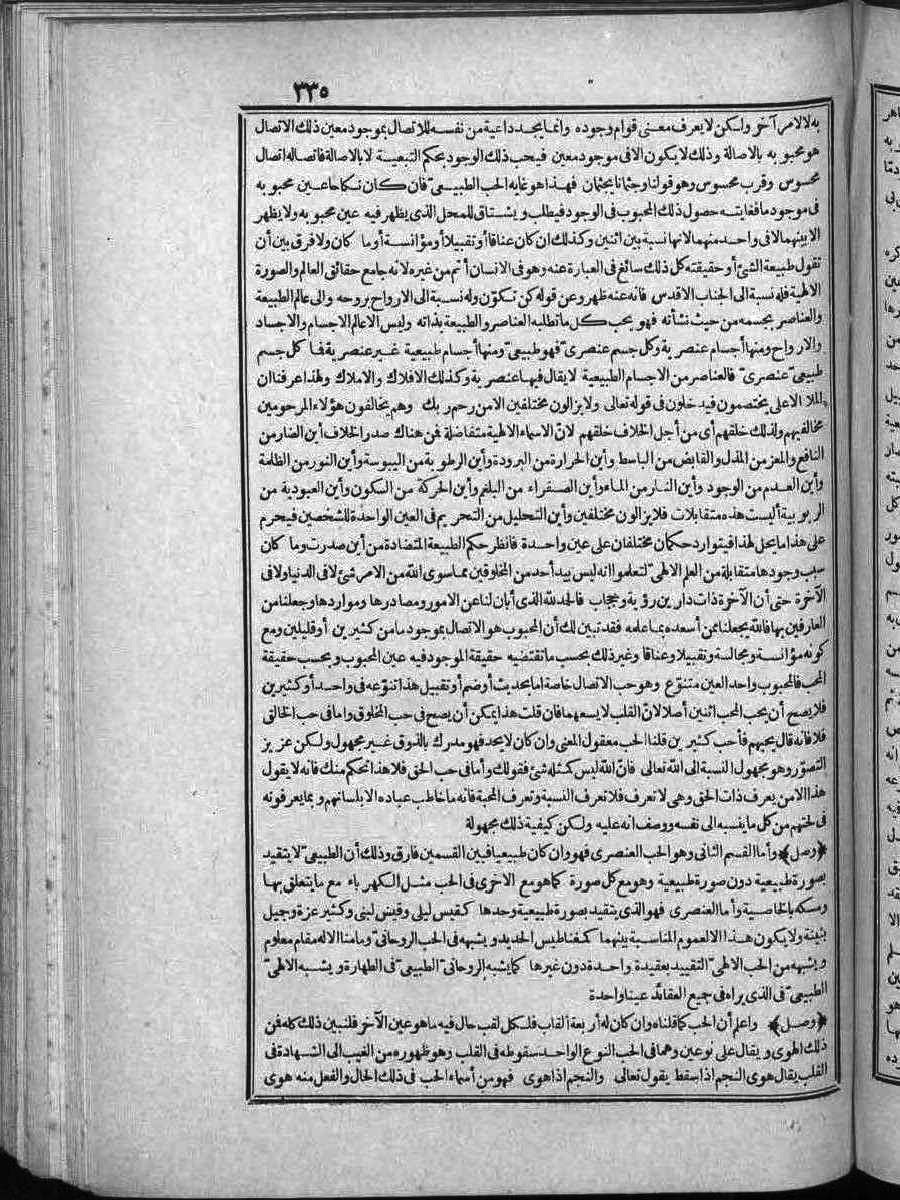 ٣٣٥
به لالامر آخر ولكن لا يعرف معنى قوام وجوده وانما يجد داعية من نفسه للاتصال بموجود معين ذلك الاتصال
هو محبو به بالاصالة وذلك لا يكون الا فى موجود معين فيحب ذلك الوجود بحكم التبعية لا بالاصالة فاتصاله اتصال
محسوس وقرب محسوس وهو قولنا وجثمانا بجثمان فهذا هو غاية الحب الطبيعى فان كان نكاحا عين محبو به
فى موجود ما فغايته حصول ذلك المحبوب فى الوجود فيطلب و يشتاق للمحل الذى يظهر فيه عين محبو به ولا يظهر
الا بينهما لا فى واحد منهما لانها نسبة بين اثنين وكذلك ان كان عناقا أو تقبيلا أو مؤانسة أو ما كان ولا فرق بين أن
تقول طبيعة الشئ أو حقيقته كل ذلك سائغ فى العبارة عنه وهو فى الانسان أتم من غيره لانه جامع حقائق العالم والصورة
الالهية فله نسبة الى الجناب الاقدس فانه عنه ظهر وعن قوله كن تكوّن وله نسبة الى الارواح بروحه والى عالم الطبيعة
والعناصر بجسمه من حيث نشأته فهو يحب كل ما تطلبه العناصر والطبيعة بذاته وليس الا عالم الاجسام والاجساد
والارواح ومنها أجسام عنصر ية وكل جسم عنصرى فهو طبيعى ومنها أجسام طبيعية غير عنصر ية فما كل جسم
طبيعى عنصرى فالعناصر من الاجسام الطبيعية لا يقال فيها عنصر ية وكذلك الافلاك والاملاك ولهذا عرفنا ان
الملا الاعلى يختصمون فيدخلون فى قوله تعالى ولا يزالون مختلفين الا من رحم ر بك وهم يخالفون هؤلاء المرحومين
مخالفيهم ولذلك خلقهم أى من أجل الخلاف خلقهم لانّ الاسماء الالهية متفاضلة فمن هناك صدر الخلاف أين الضار من
النافع والمعز من المذل والقابض من الباسط وأين الحرارة من البرودة وأين الرطو بة من اليبوسة وأين النور من الظلمة
وأين العدم من الوجود وأين النار من الماء وأين الصفراء من البلغم وأين الحركة من السكون وأين العبودية من
الر بو بية أليست هذه متقابلات فلا يزالون مختلفين وأين التحليل من التحر يم فى العين الواحدة للشخصين فيحرم
على هذا ما يحل لهذا فيتوارد حكمان مختلفان على عين واحدة فانظر حكم الطبيعة المتضادة من أين صدرت وما كان
سبب وجودها متقابلة من العلم الالهى لتعلموا انه ليس بيد أحد من المخلوقين مما سوى الله من الامر شئ لا فى الدنيا ولا فى
الآخرة حتى أن الآخرة ذات دار ين رؤ ية وحجاب فالحد لله الذى أبان لنا عن الامور ومصادرها ومواردها وجعلنا من
العارفين بها فالله يجعلنا ممن أسعده بما علمه فقد تبين لك أن المحبوب هو الاتصال بموجود ما من كثير ين أو قليلين ومع
كونه مؤانسة ومجالسة وتقبيلا وعناقا وغير ذلك بحسب ما تقتضيه حقيقة الموجود فيه عين المحبوب و بحسب حقيقة
المحب فالمحبوب واحد العين متنوّع وهو حب الاتصال خاصة اما بحديث أو ضم أو تقبيل هذا تنوّعه فى واحد أو كثير ين
فلا يصح أن يحب المحب اثنين أصلا لانّ القلب لا يسعهما فان قلت هذا يمكن أن يصح فى حب المخلوق واما فى حب الخالق
فلا فانه قال يحبهم فأحب كثير ين قلنا الحب معقول المعنى وان كان لا يحد فهو مدرك بالذوق غير مجهول ولكن عز يز
التصوّر وهو مجهول النسبة الى الله تعالى فانّ الله ليس كمثله شئ فقولك وأما فى حب الحق فلا هذا تحكم منك فانه لا يقول
هذا الا من يعرف ذات الحق وهى لا تعرف فلا تعرف النسبة وتعرف المحبة فانه ما خاطب عباده الا بلسانهم و بما يعرفونه
فى لحنهم من كل ما ينسبه الى نفسه ووصف انه عليه ولكن كيفية ذلك مجهولة
﴿وصل﴾ وأما القسم الثانى وهو الحب العنصرى فهو وان كان طبيعيا فبين القسمين فارق وذلك أن الطبيعى لا يتقيد
بصورة طبيعية دون صورة طبيعية وهو مع كل صورة كما هو مع الاخرى فى الحب مثل الكهر باء مع ما يتعلق بها
وتمسكه بالخاصية وأما العنصرى فهو الذى يتقيد بصورة طبيعية وحدها كقيس ليلى وقيس لبنى وكثير عزة وجميل
بثينة ولا يكون هذا الا لعموم المناسبة بينهما كمغناطيس الحديد و يشبهه فى الحب الروحانى وما منا الا له مقام معلوم
و يشبهه من الحب الالهى التقييد بعقيدة واحدة دون غيرها كما يشبه الروحانى الطبيعى فى الطهارة و يشبه الالهى
الطبيعى فى الذى يراه فى جميع العقائد عينا واحدة
﴿وصل﴾ واعلم أن الحب كما قلناه وان كان له أر بعة ألقاب فلكل لقب حال فيه ما هو عين الآخر فلنبين ذلك كله فمن
ذلك الهوى و يقال على نوعين وهما فى الحب النوع الواحد سقوطه فى القلب وهو ظهوره من الغيب الى الشهادة فى
القلب يقال هوى النجم اذا سقط يقول تعالى والنجم اذا هوى فهو من أسماء الحب فى ذلك الحال والفعل منه هوى